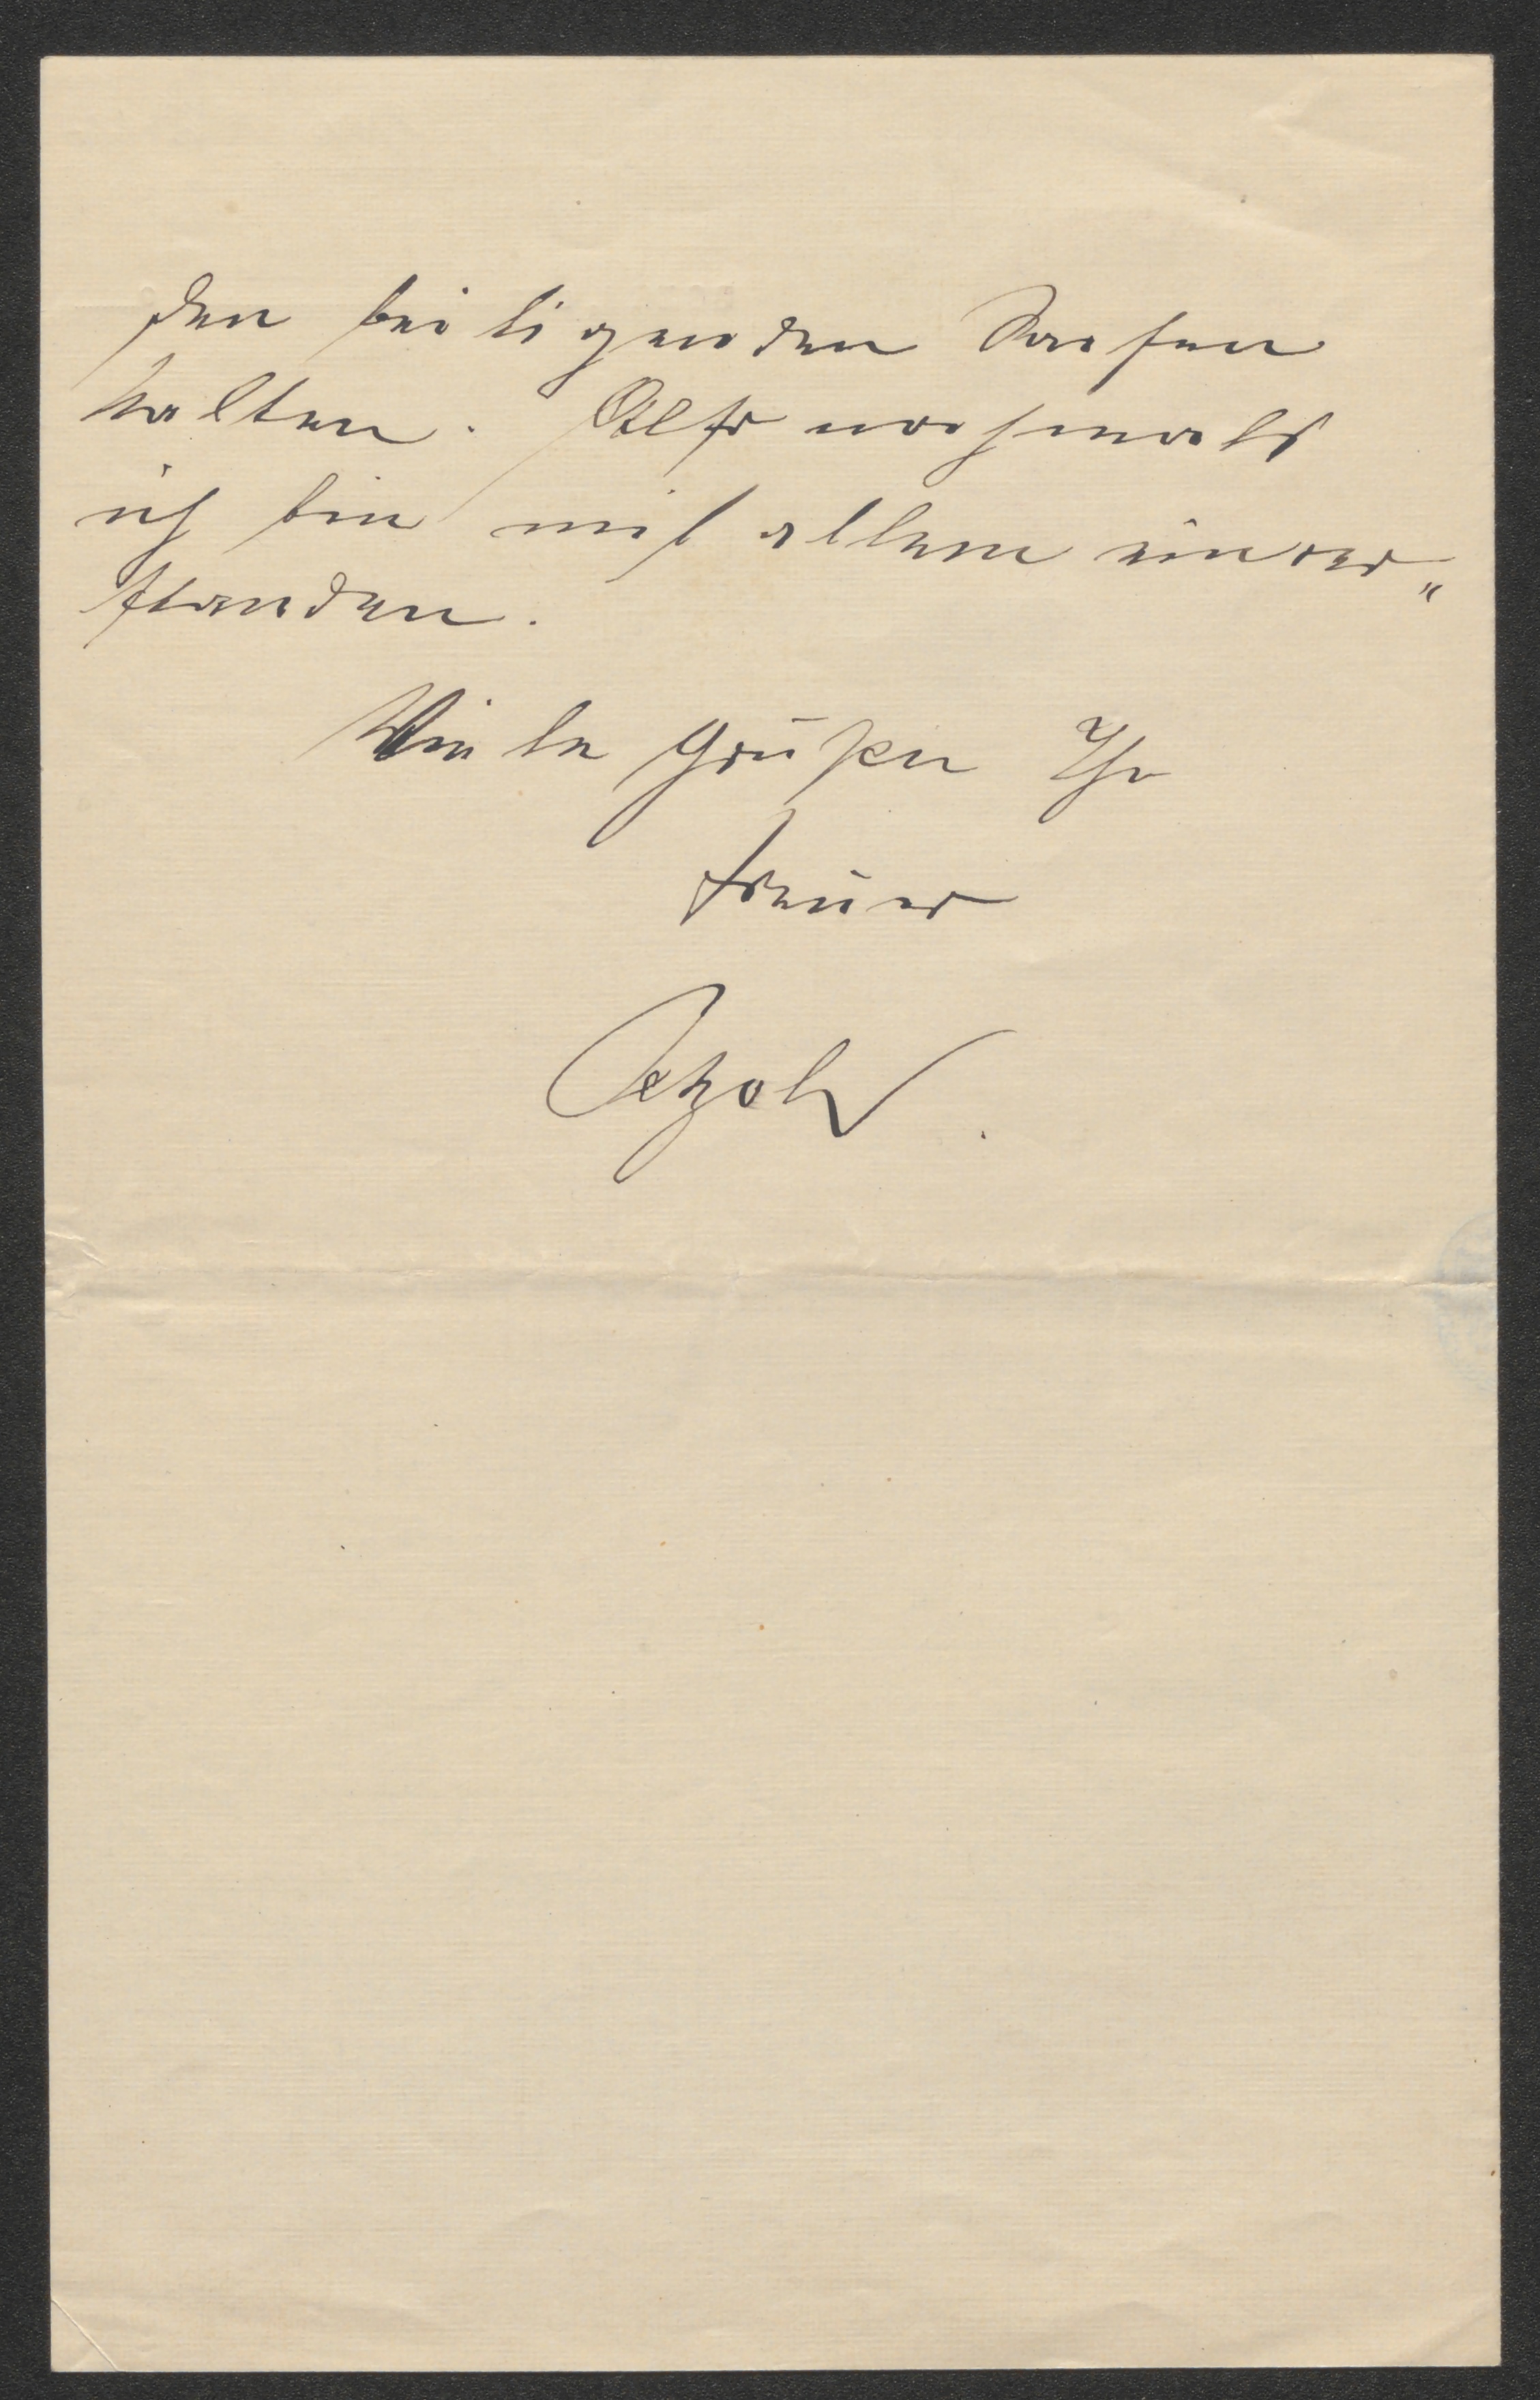 den beiligenden Sachen
halten. Also nochmals
ich bin mit allem einver„
standen.
Viele Grüße Ihr
treuer
Petzold